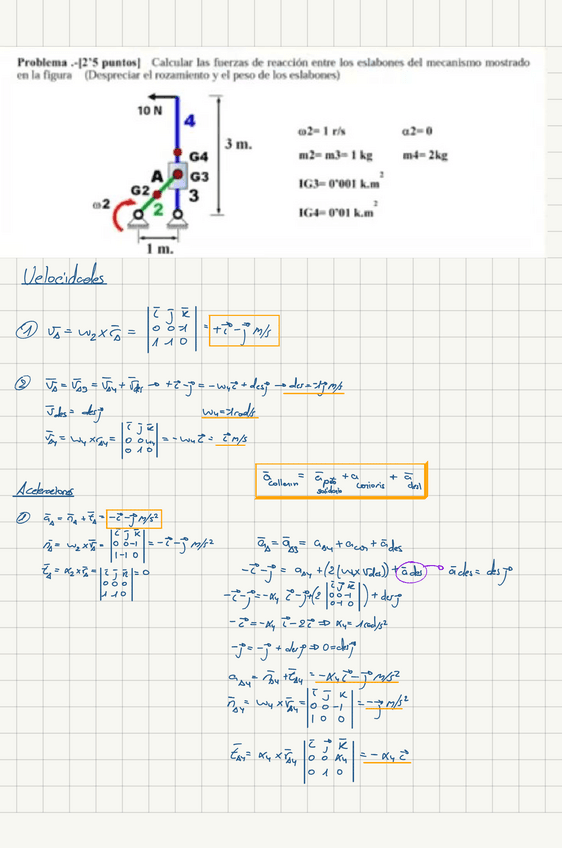 Problema .-[2'5 puntos] Calcular las fuerzas de reacción entre los eslabones del mecanismo mostrado
en la figura (Despreciar el rozamiento y el peso de los eslabones)
10 N
4
3 m.
G4
A
G3
G2
3
ω2
2
1 m.
ω2= 1 r/s α2=0
m2= m3= 1 kg m4= 2kg
IG3= 0'001 k.m²
IG4= 0'01 k.m²
Velocidades
① v̄A = ω2 x r̄A = | i j k ; 0 0 -1 ; 1 1 0 | = +i - j m/s
② v̄A = v̄A3 = v̄A4 + v̄des → +i - j = -ω4 i + des j → des = -1 j m/s
v̄des = des j
ω4 = -1 rad/s
v̄A4 = ω4 x rA4 = | i j k ; 0 0 ω4 ; 0 1 0 | = -ω4 i = i m/s
ā collarín = ā pto solidario + a coriolis + ā desl
Aceleraciones
① āA = n̄A + t̄A = -i - j m/s²
n̄A = ω2 x v̄A = | i j k ; 0 0 -1 ; 1 -1 0 | = -i - j m/s²
t̄A = α2 x r̄A = | i j k ; 0 0 0 ; 1 1 0 | = 0
āA = āA3 = aA4 + acor + ādes
-i - j = aA4 + (2(ω4 x vdes)) + ādes → ādes = des j
-i - j = -α4 i - j + (2 | i j k ; 0 0 -1 ; 0 -1 0 |) + des j
-i = -α4 i - 2i ⇒ α4 = -1 rad/s²
-j = -j + des j ⇒ 0 = des j
aA4 = n̄A4 + t̄A4 = -α4 i - j m/s²
n̄A4 = ω4 x v̄A4 = | i j k ; 0 0 -1 ; 1 0 0 | = -j m/s²
t̄A4 = α4 x r̄A4 | i j k ; 0 0 α4 ; 0 1 0 | = -α4 i